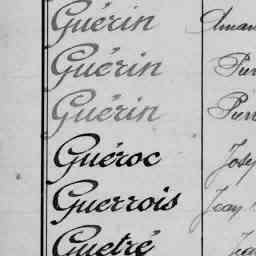 Guérin
Guérin Pier
Guérin Pier
Guéroc Josep
Guerrois Jean
Guetré